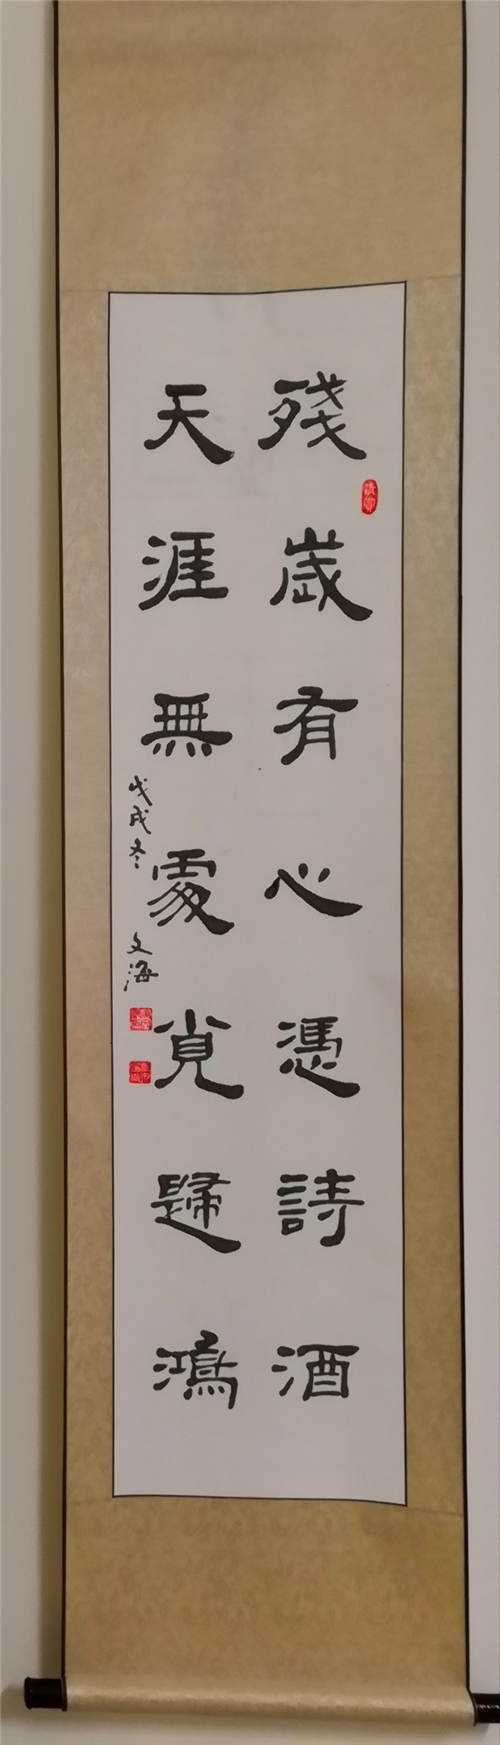 殘歲有心憑詩酒
天涯無處覓歸鴻
戊戌冬 文海